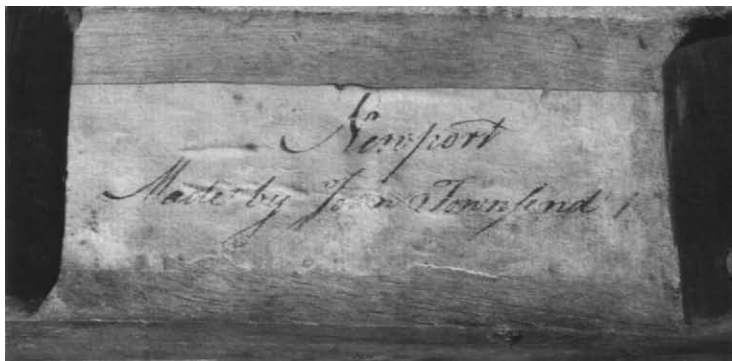 Newport
Made by John Townsend